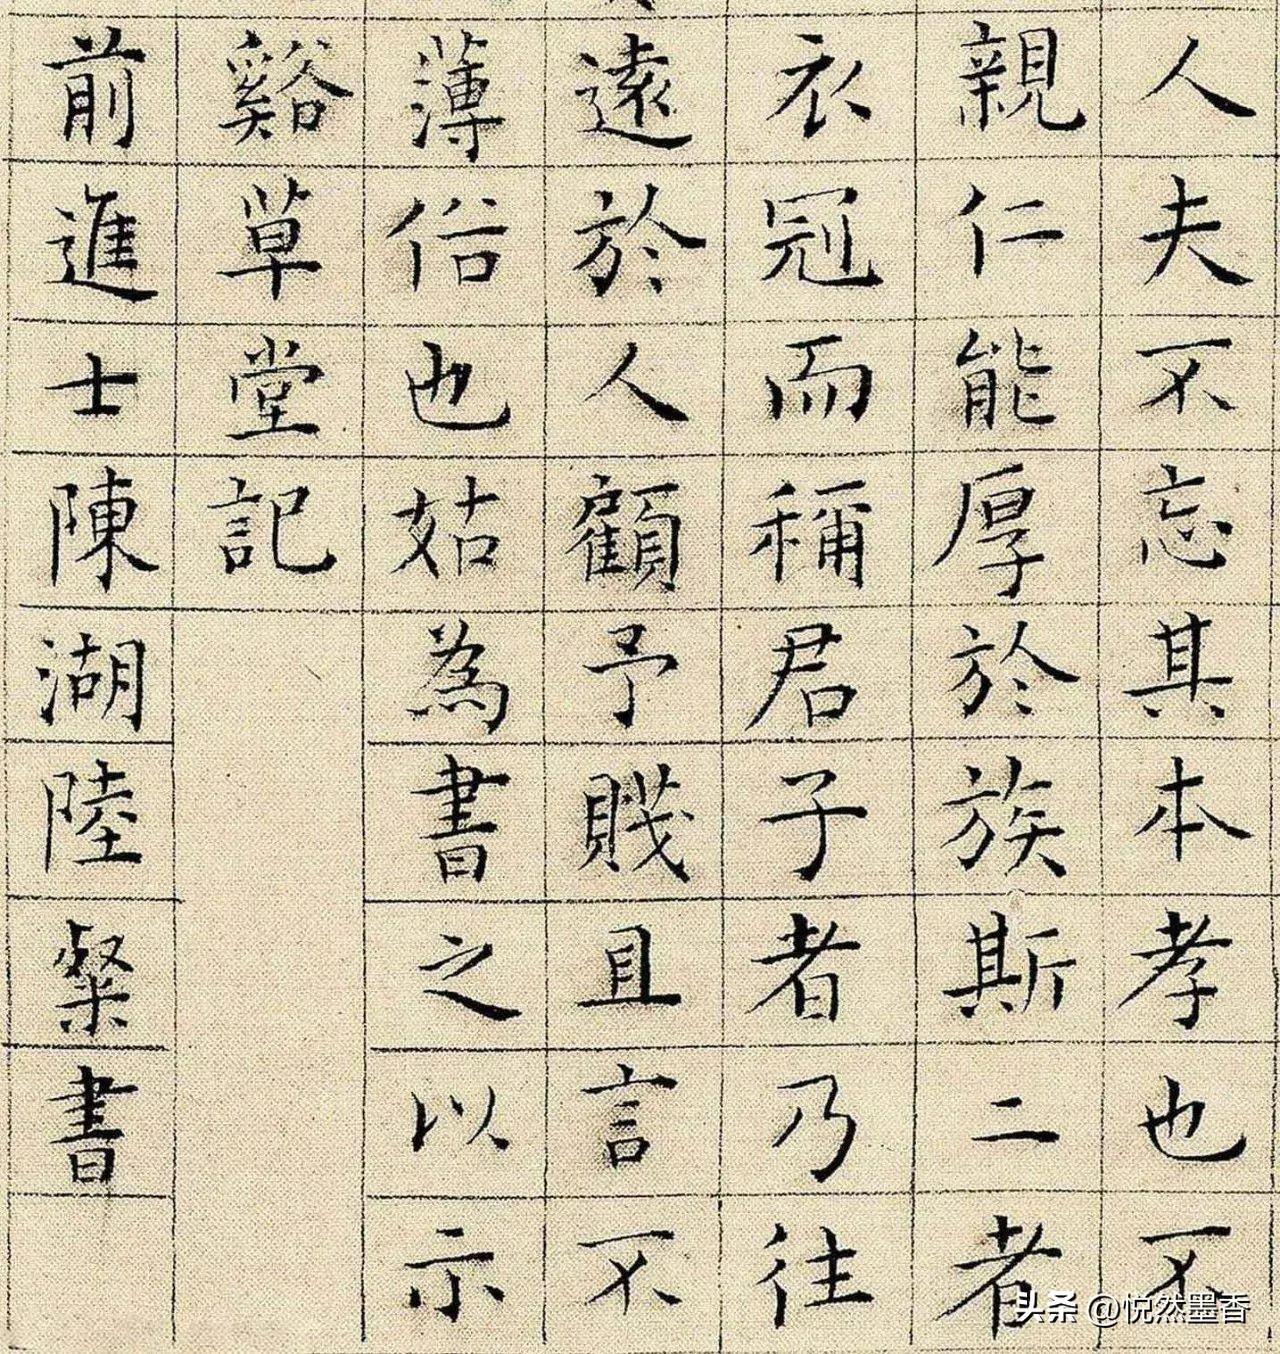 人夫不忘其本孝也不
親仁能厚於族斯二者
衣冠而稱君子者乃往
遠於人顧予賤且言不
薄俗也姑為書之以示
谿草堂記
前進士陳湖陸粲書
头条 @悦然墨香